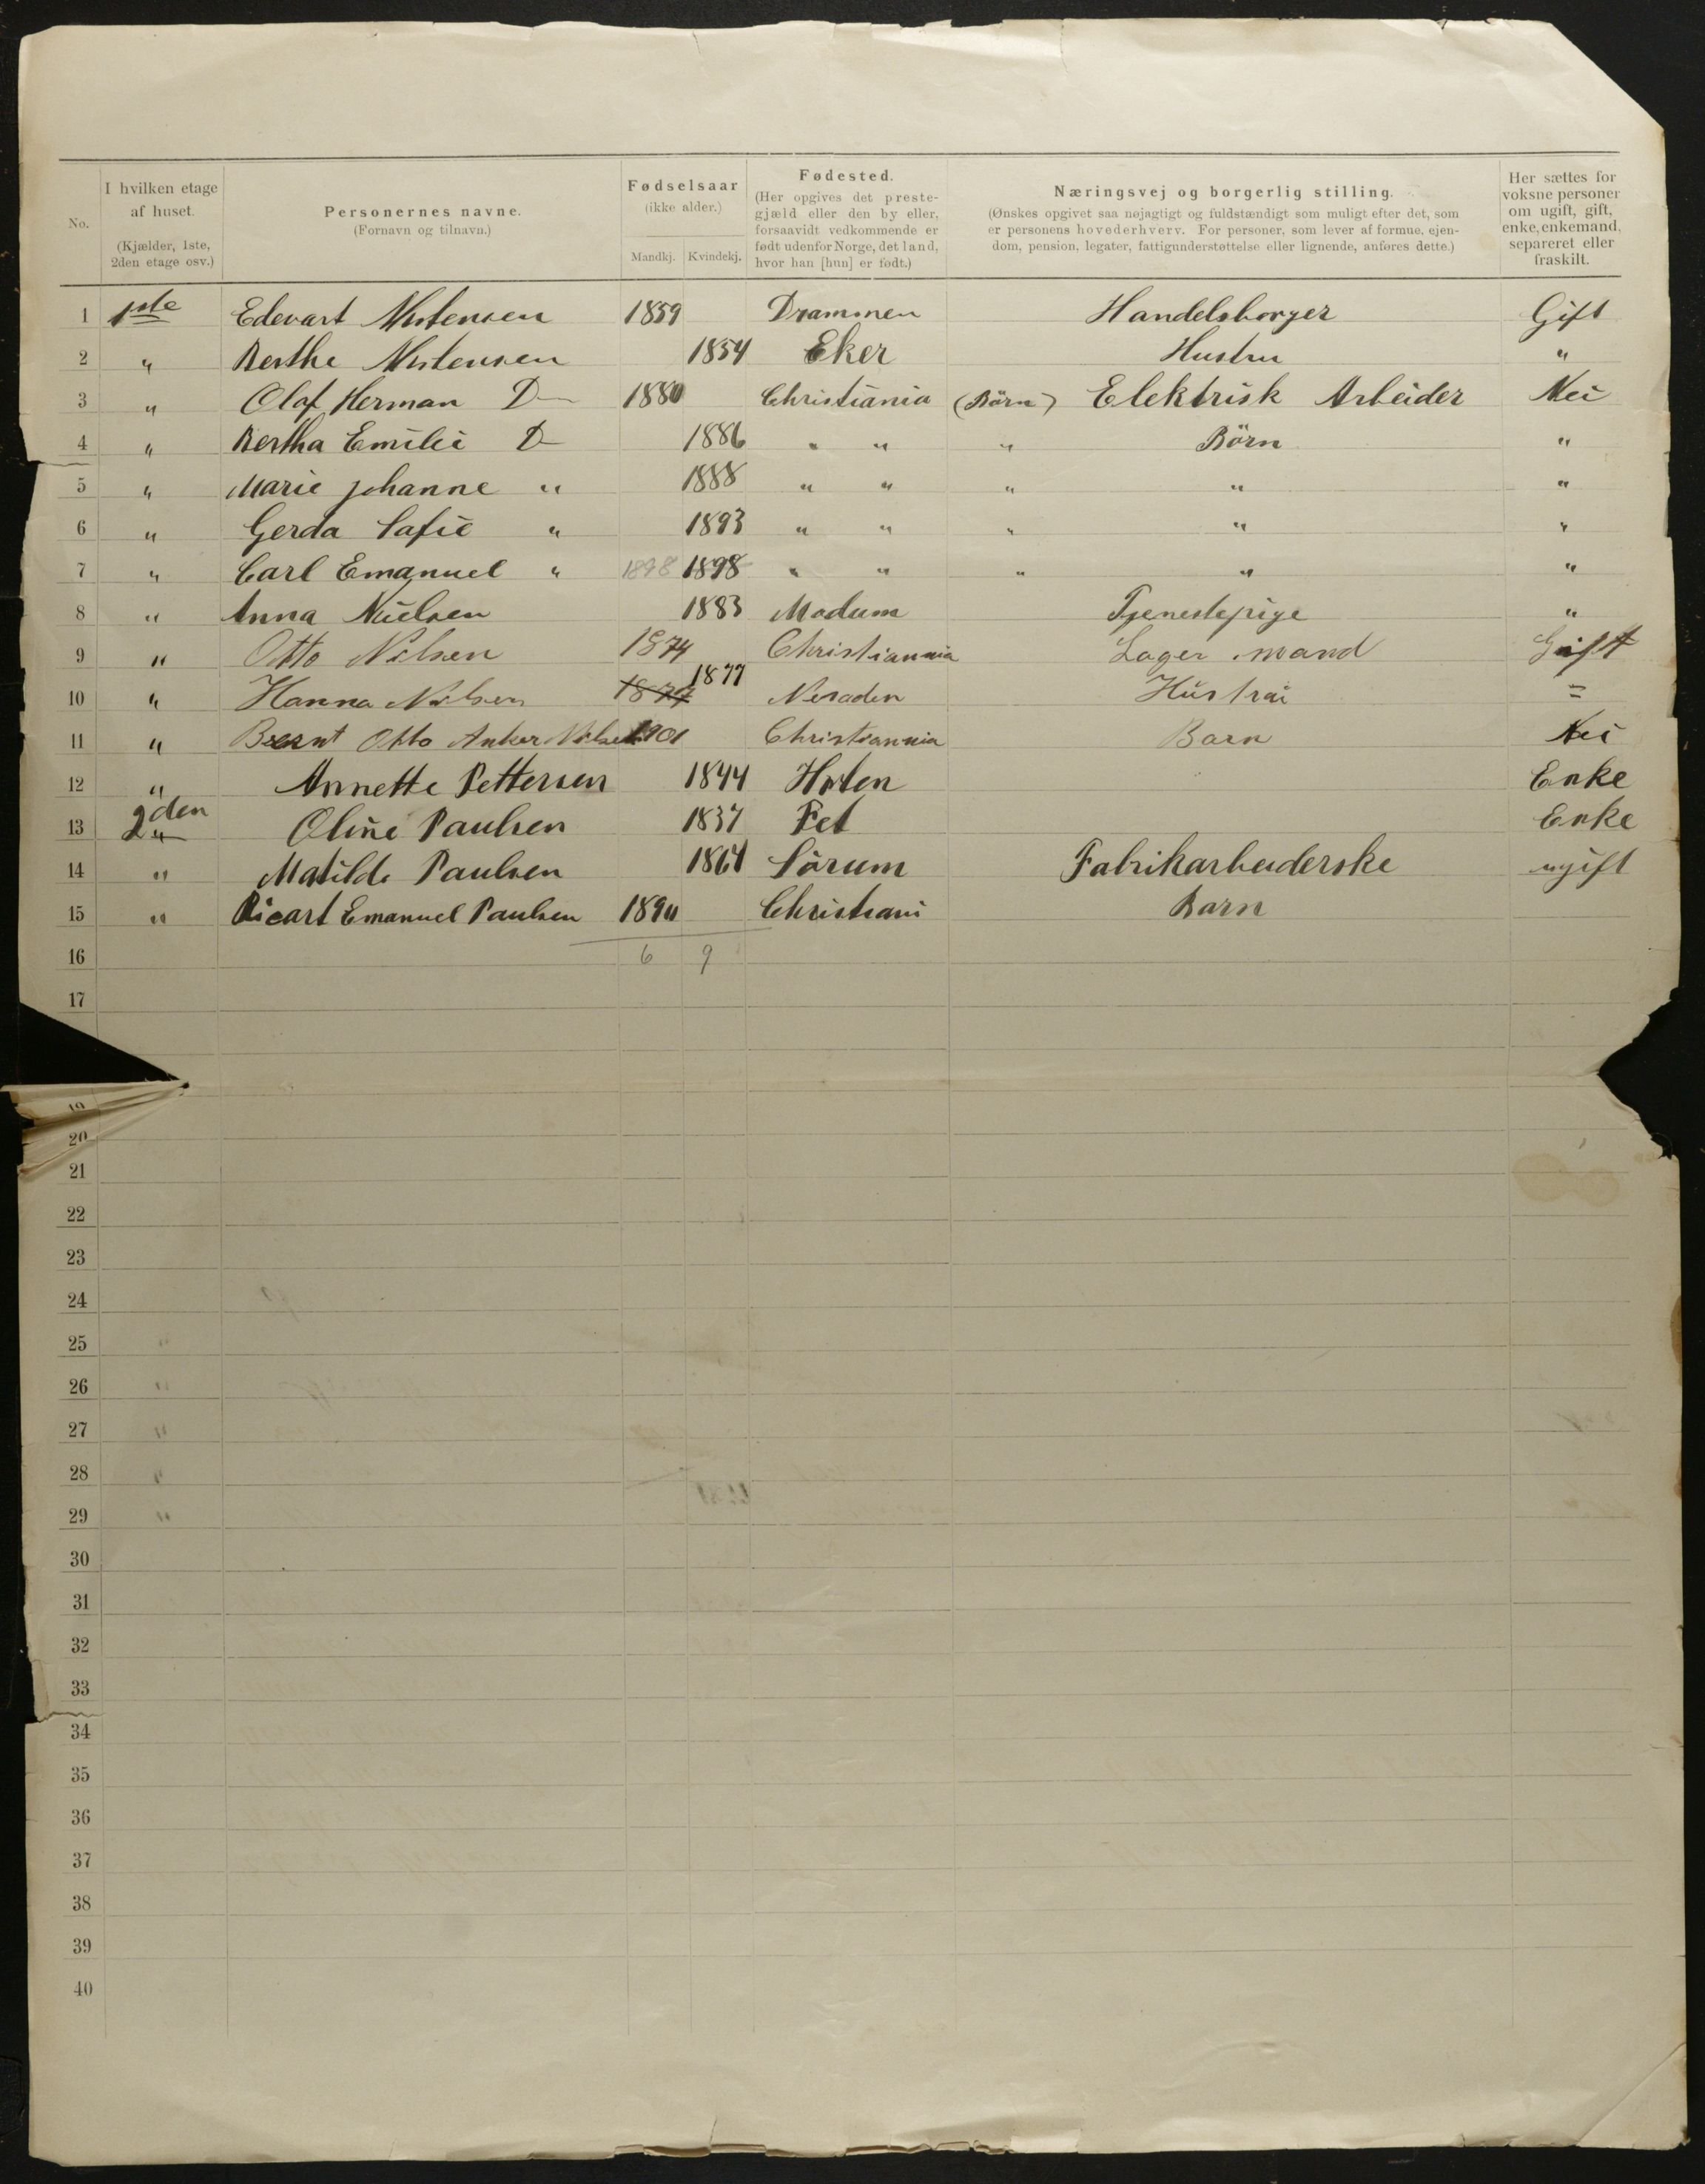 No.
I hvilken etage af huset. (Kjælder, 1ste, 2den etage osv.)
Personernes navne. (Fornavn og tilnavn.)
Fødselsaar (ikke alder.) Mandkj. Kvindekj.
Fødested. (Her opgives det prestegjæld eller den by eller, forsaavidt vedkommende er født udenfor Norge, det land, hvor han [hun] er født.)
Næringsvej og borgerlig stilling. (Ønskes opgivet saa nøjagtigt og fuldstændigt som muligt efter det, som er personens hovederhverv. For personer, som lever af formue, ejendom, pension, legater, fattigunderstøttelse eller lignende, anføres dette.)
Her sættes for voksne personer om ugift, gift, enke, enkemand, separeret eller fraskilt.
1 1ste Edevart 1859 Drammen Handelsborger Gift
2 " Berthe 1854 Eker Hustru "
3 " Olaf Herman D 1880 Christiania (Börn) Elektrisk Arbeider Nei
4 " Bertha Emilie D 1886 " " " Börn "
5 " Marie Johanne " 1888 " " " " "
6 " Gerda Safie " 1893 " " " " "
7 " Carl Emanuel " 1898 1898 " " " " "
8 " Anna Nielsen 1883 Modum Tjenestepige "
9 " Otto Nilsen 1874 Christiannia Lager mand Gift
10 " Hanna Nilsen 1877 Hustrai =
11 " Otto Anker Nilsen 1901 Christiannia Barn Nei
12 " Annette Pettersen 1844 Enke
13 2den " Oline Paulsen 1837 Fet Enke
14 " Matilde Paulsen 1864 Sörum Fabrikarbeiderske ugift
15 " Ricart Emanuel Paulsen 1890 Christiani Barn
16 6 9
17
19
20
21
22
23
24
25
26
27
28
29
30
31
32
33
34
35
36
37
38
39
40